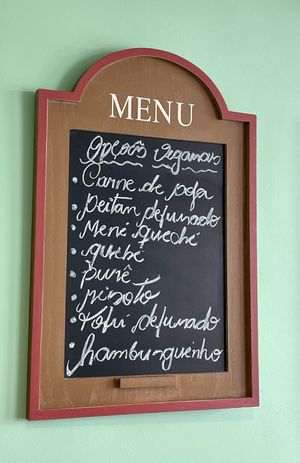 MENU
Opções Veganas
Carne de soja
Seitan defumado
Mené quechê
quibe
purê
risoto
Tofu defumado
hamburguinho